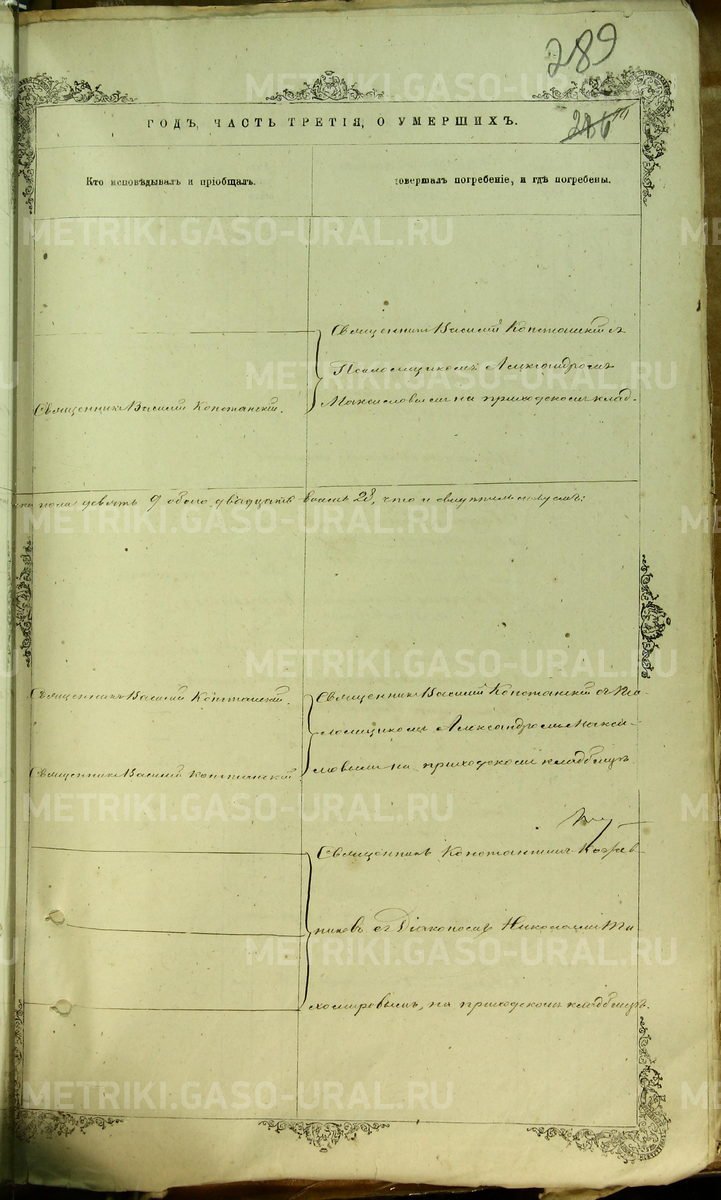 289
286
ГОДЪ, ЧАСТЬ ТРЕТІЯ, О УМЕРШИХЪ.
Кто исповѣдывалъ и пріобщалъ.
совершалъ погребеніе, и гдѣ погребены.
Священникъ Василій Конотанскій съ
Псаломщикомъ Александромъ
Священникъ Василій Конотанскій.
на приходскомъ клад-
пола девять 9 обоего двадцать восемь 28, что и
Священникъ Василій Конотанскій.
Священникъ Василій Конотанскій съ Пса-
ломщикомъ Александромъ
Священникъ Василій Конотанскій
на приходскомъ кладбищѣ
Священникъ Константинъ
съ Діакономъ Николаемъ Ти-
хомировымъ, на приходскомъ кладбищѣ.
METRIKI.GASO-URAL.RU